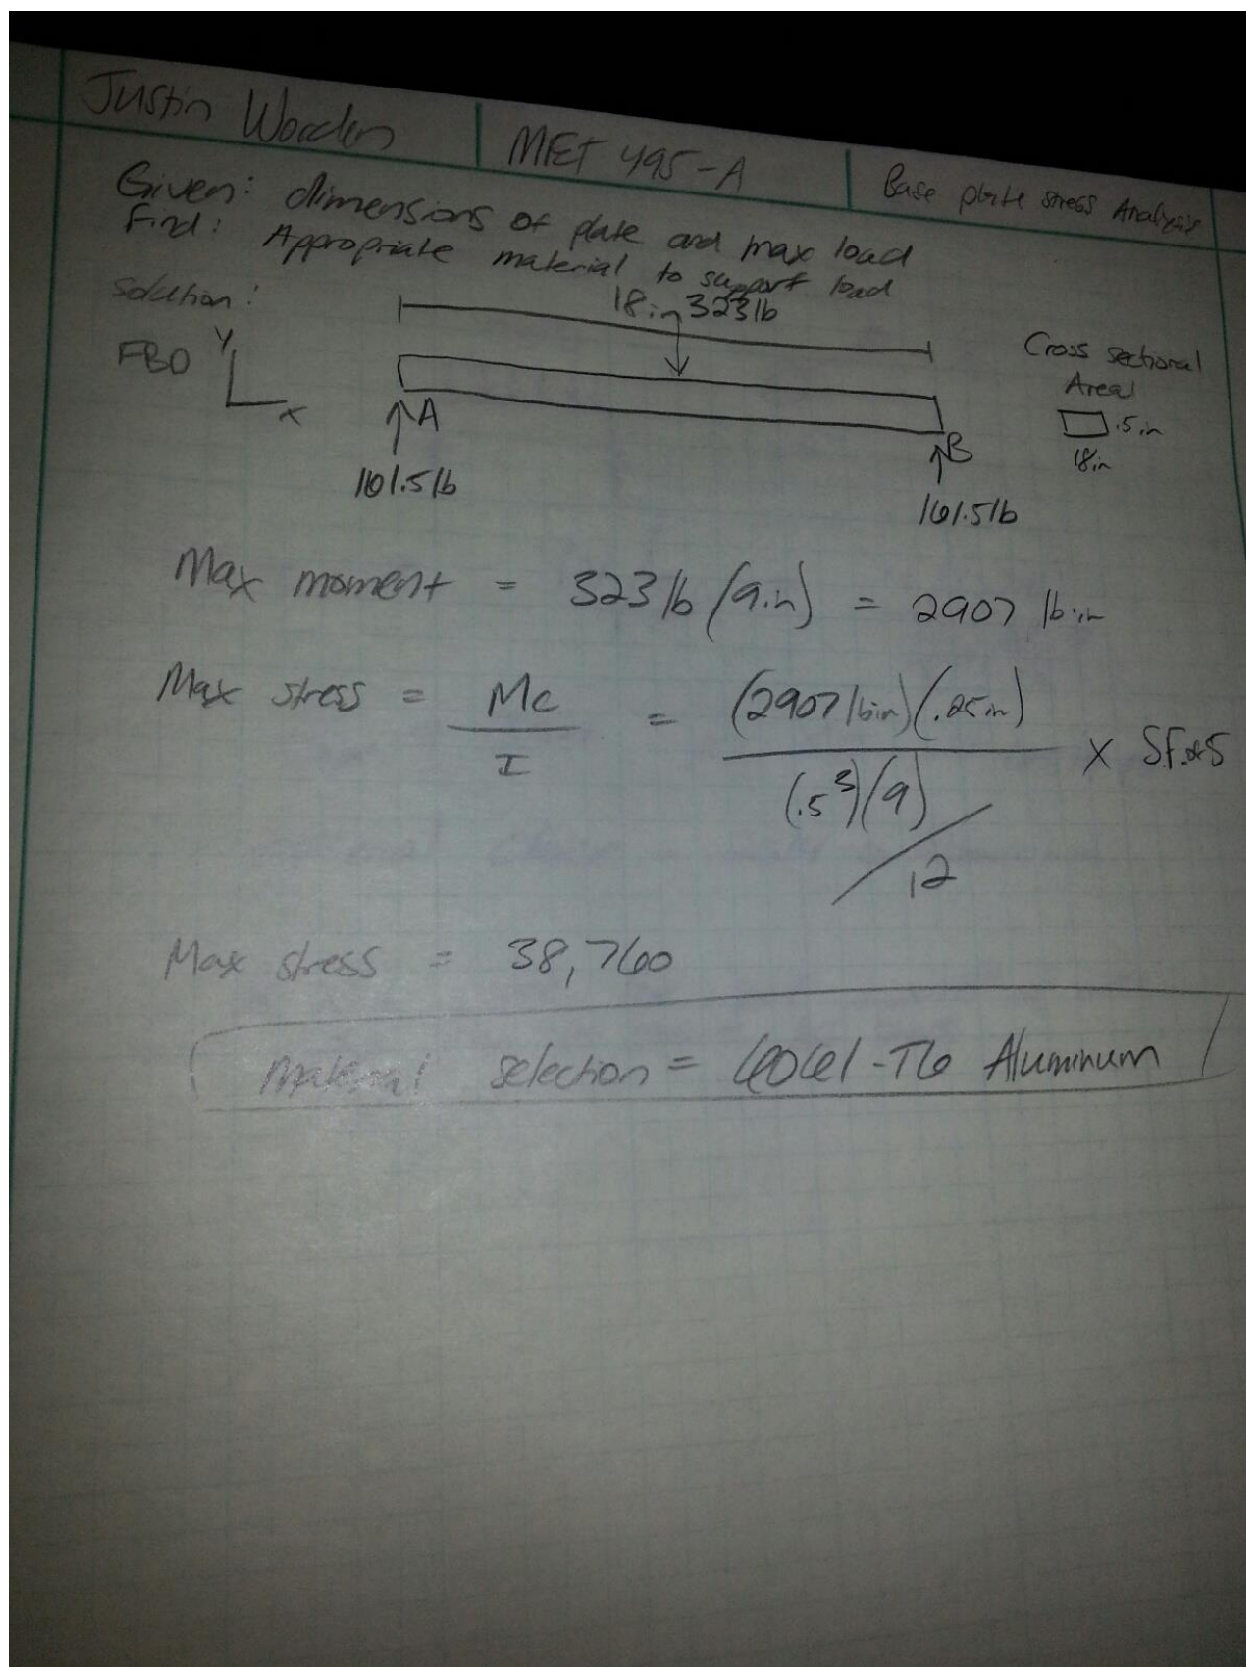 Justin Worden | MET 495-A | Base plate stress Analysis
Given: dimensions of plate and max load
Find: Appropriate material to support load
Solution:
18 in 323 lb
FBD
Y
X
A
B
161.5 lb
161.5 lb
Cross sectional
Area
.5 in
18 in
Max moment = 323 lb (9in) = 2907 lb in
Max stress = Mc / I = (2907 lb in)(.25in) / (.5³)(9) / 12 x S.F. of 5
Max stress = 38,760
Material selection = 6061-T6 Aluminum